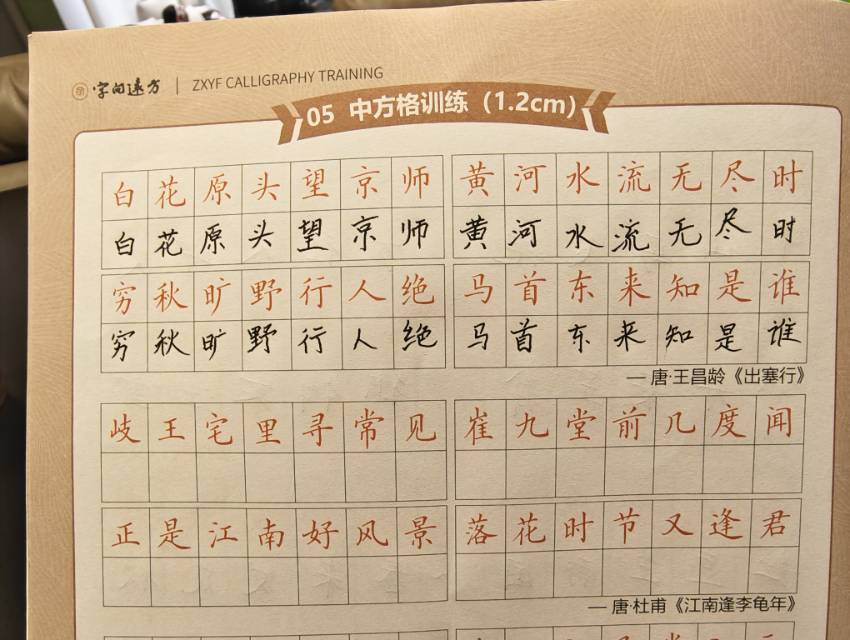 字向远方 | ZXYF CALLIGRAPHY TRAINING
05 中方格训练（1.2cm）
白花原头望京师 黄河水流无尽时
白花原头望京师 黄河水流无尽时
穷秋旷野行人绝 马首东来知是谁
穷秋旷野行人绝 马首东来知是谁
— 唐·王昌龄《出塞行》
岐王宅里寻常见 崔九堂前几度闻
正是江南好风景 落花时节又逢君
— 唐·杜甫《江南逢李龟年》